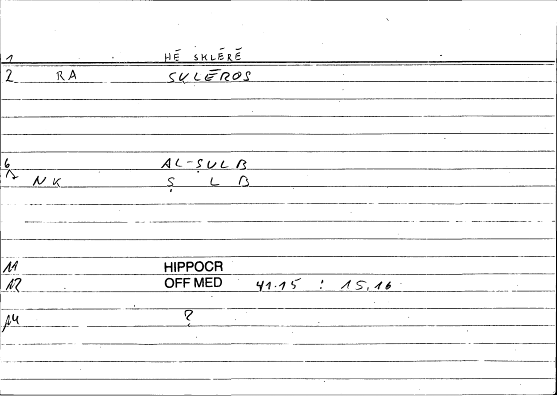 1 HĒ SKLĒRĒ
2 RA SKLĒROS
6 AL-ṢULB
7 NK Ṣ L B
11 HIPPOCR
12 OFF MED 41.15 : 15,16
14 ?